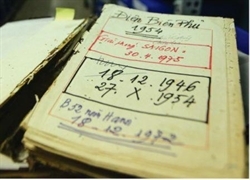 Điện Biên Phủ
1954
Giải phóng SAIGON:
30.4.1975
18.12.1946
27. X. 1954
B52 ném Hanoi
18.12.1972